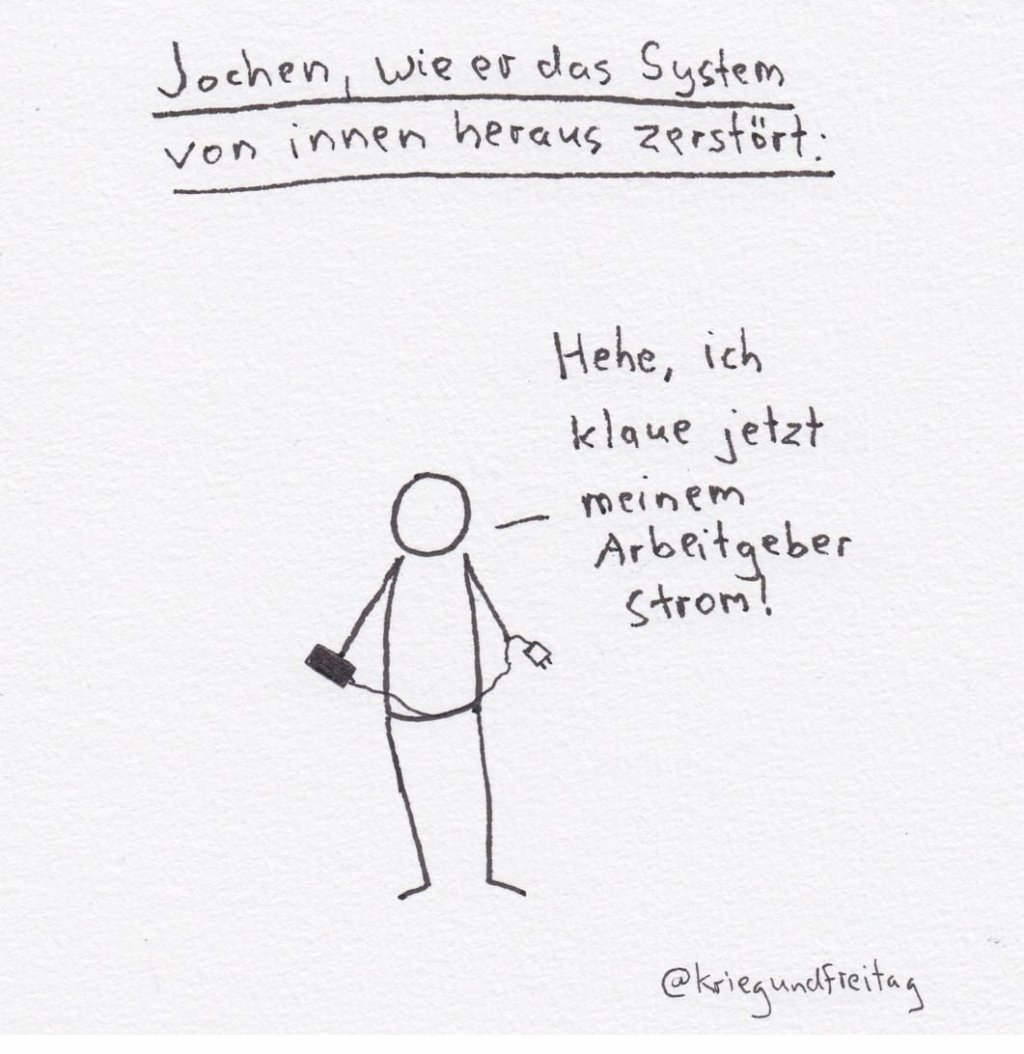 Jochen, wie er das System
von innen heraus zerstört:
Hehe, ich
klaue jetzt
meinem
Arbeitgeber
Strom!
@kriegundfreitag